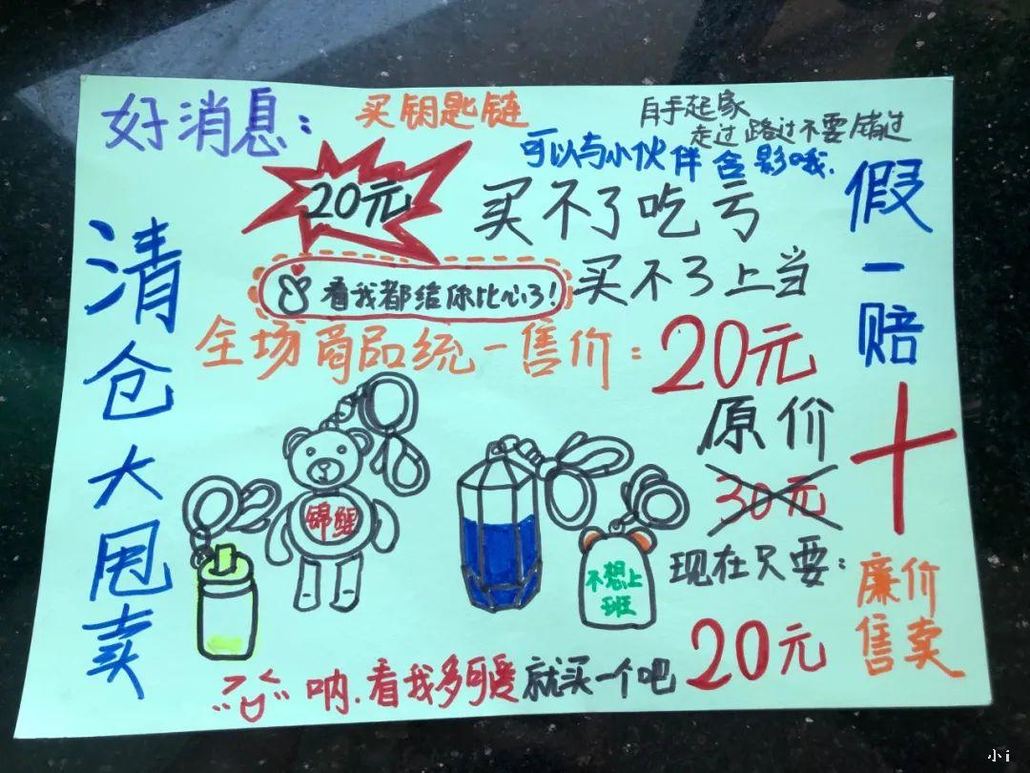 好消息：
买钥匙链
白手起家
走过路过不要错过
可以与小伙伴合影哦.
20元
买不了吃亏
看我都给你比心了！
买不了上当
全场商品统一售价：20元
清仓大甩卖
假一赔十
原价
30元
现在只要：
20元
锦鲤
不想上
班
廉价
售卖
呐.看我多可爱就买一个吧
小i